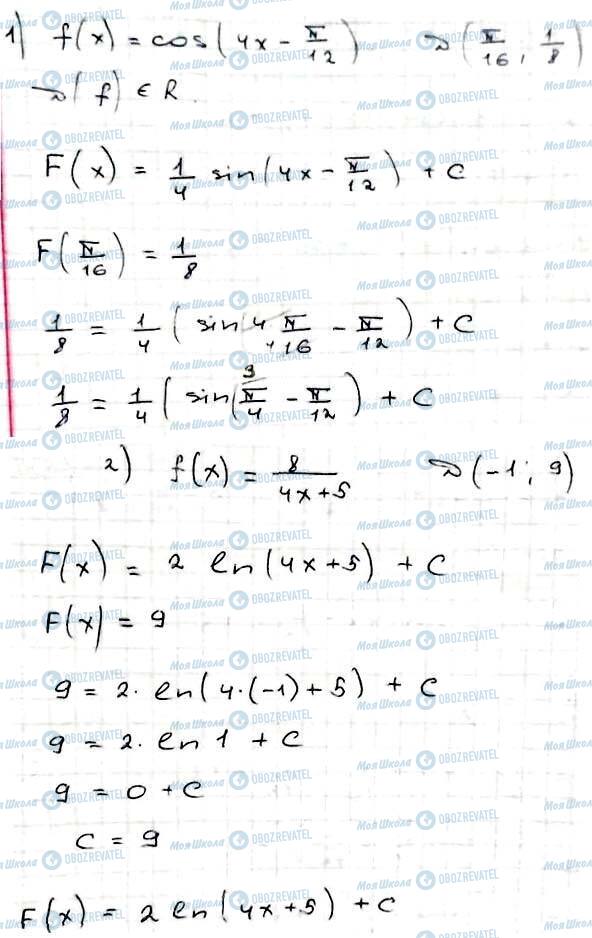 1) f(x) = cos(4x - π/12) D(π/16; 1/8)
D(f) ∈ R
F(x) = 1/4 sin(4x - π/12) + C
F(π/16) = 1/8
1/8 = 1/4 (sin(4 π/16 - π/12) + C
1/8 = 1/4 (sin(π/4 - π/12) + C
2) f(x) = 8/(4x+5) D(-1; 9)
F(x) = 2 ln(4x+5) + C
F(x) = 9
9 = 2 · ln(4·(-1)+5) + C
9 = 2 · ln 1 + C
9 = 0 + C
C = 9
F(x) = 2 ln(4x+5) + C